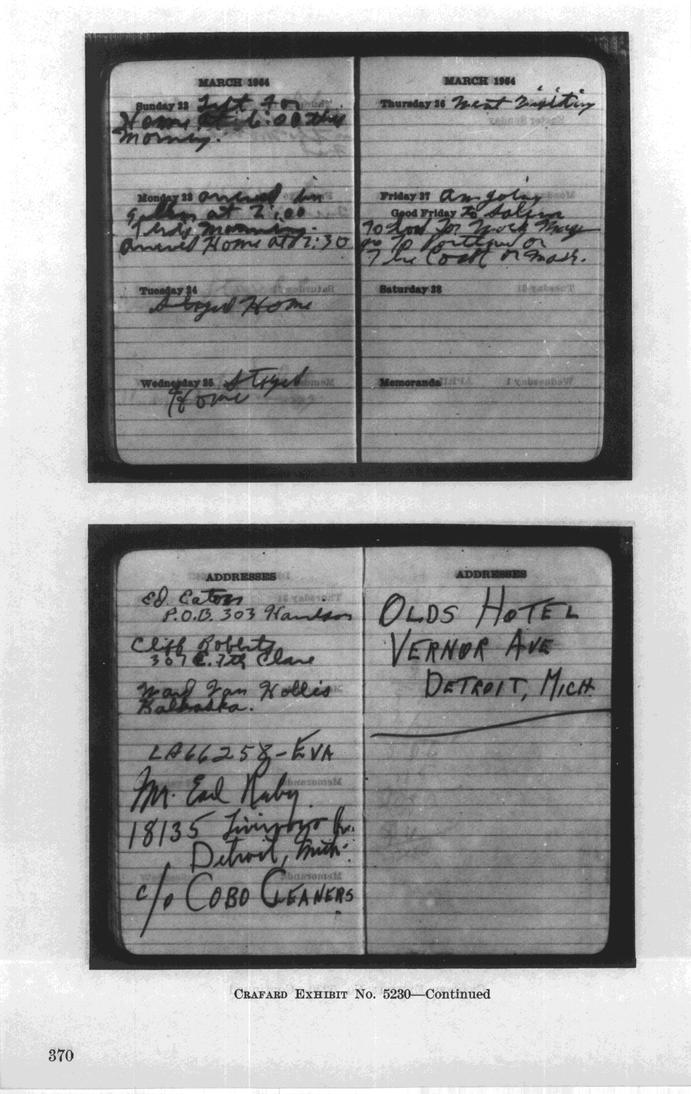 MARCH 1964
Sunday 22 Left for
Home at 6:00 this
Morning.
Monday 23 arrived in
at 2:00
this morning.
arrived Home at 2:30
Tuesday 24
Stayed Home
Wednesday 25 Stayed
Home
MARCH 1964
Thursday 26 Went Visiting
Friday 27 am going
Good Friday To Salem
To look for work May
go To Portland or
The Coast or
Saturday 28
Memoranda
ADDRESSES
Ed Eaton
P.O.B. 303 Harrison
Cliff Roberts
307 E. 7th Clare
Ward Van Hollis
Kalkaska.
LA66258-EVA
Mr. Earl Ruby
18135 Livernoys
Detroit, Mich.
c/o COBO CLEANERS
ADDRESSES
OLDS HOTEL
VERNOR AVE
DETROIT, MICH.
CRAFARD EXHIBIT No. 5230—Continued
370